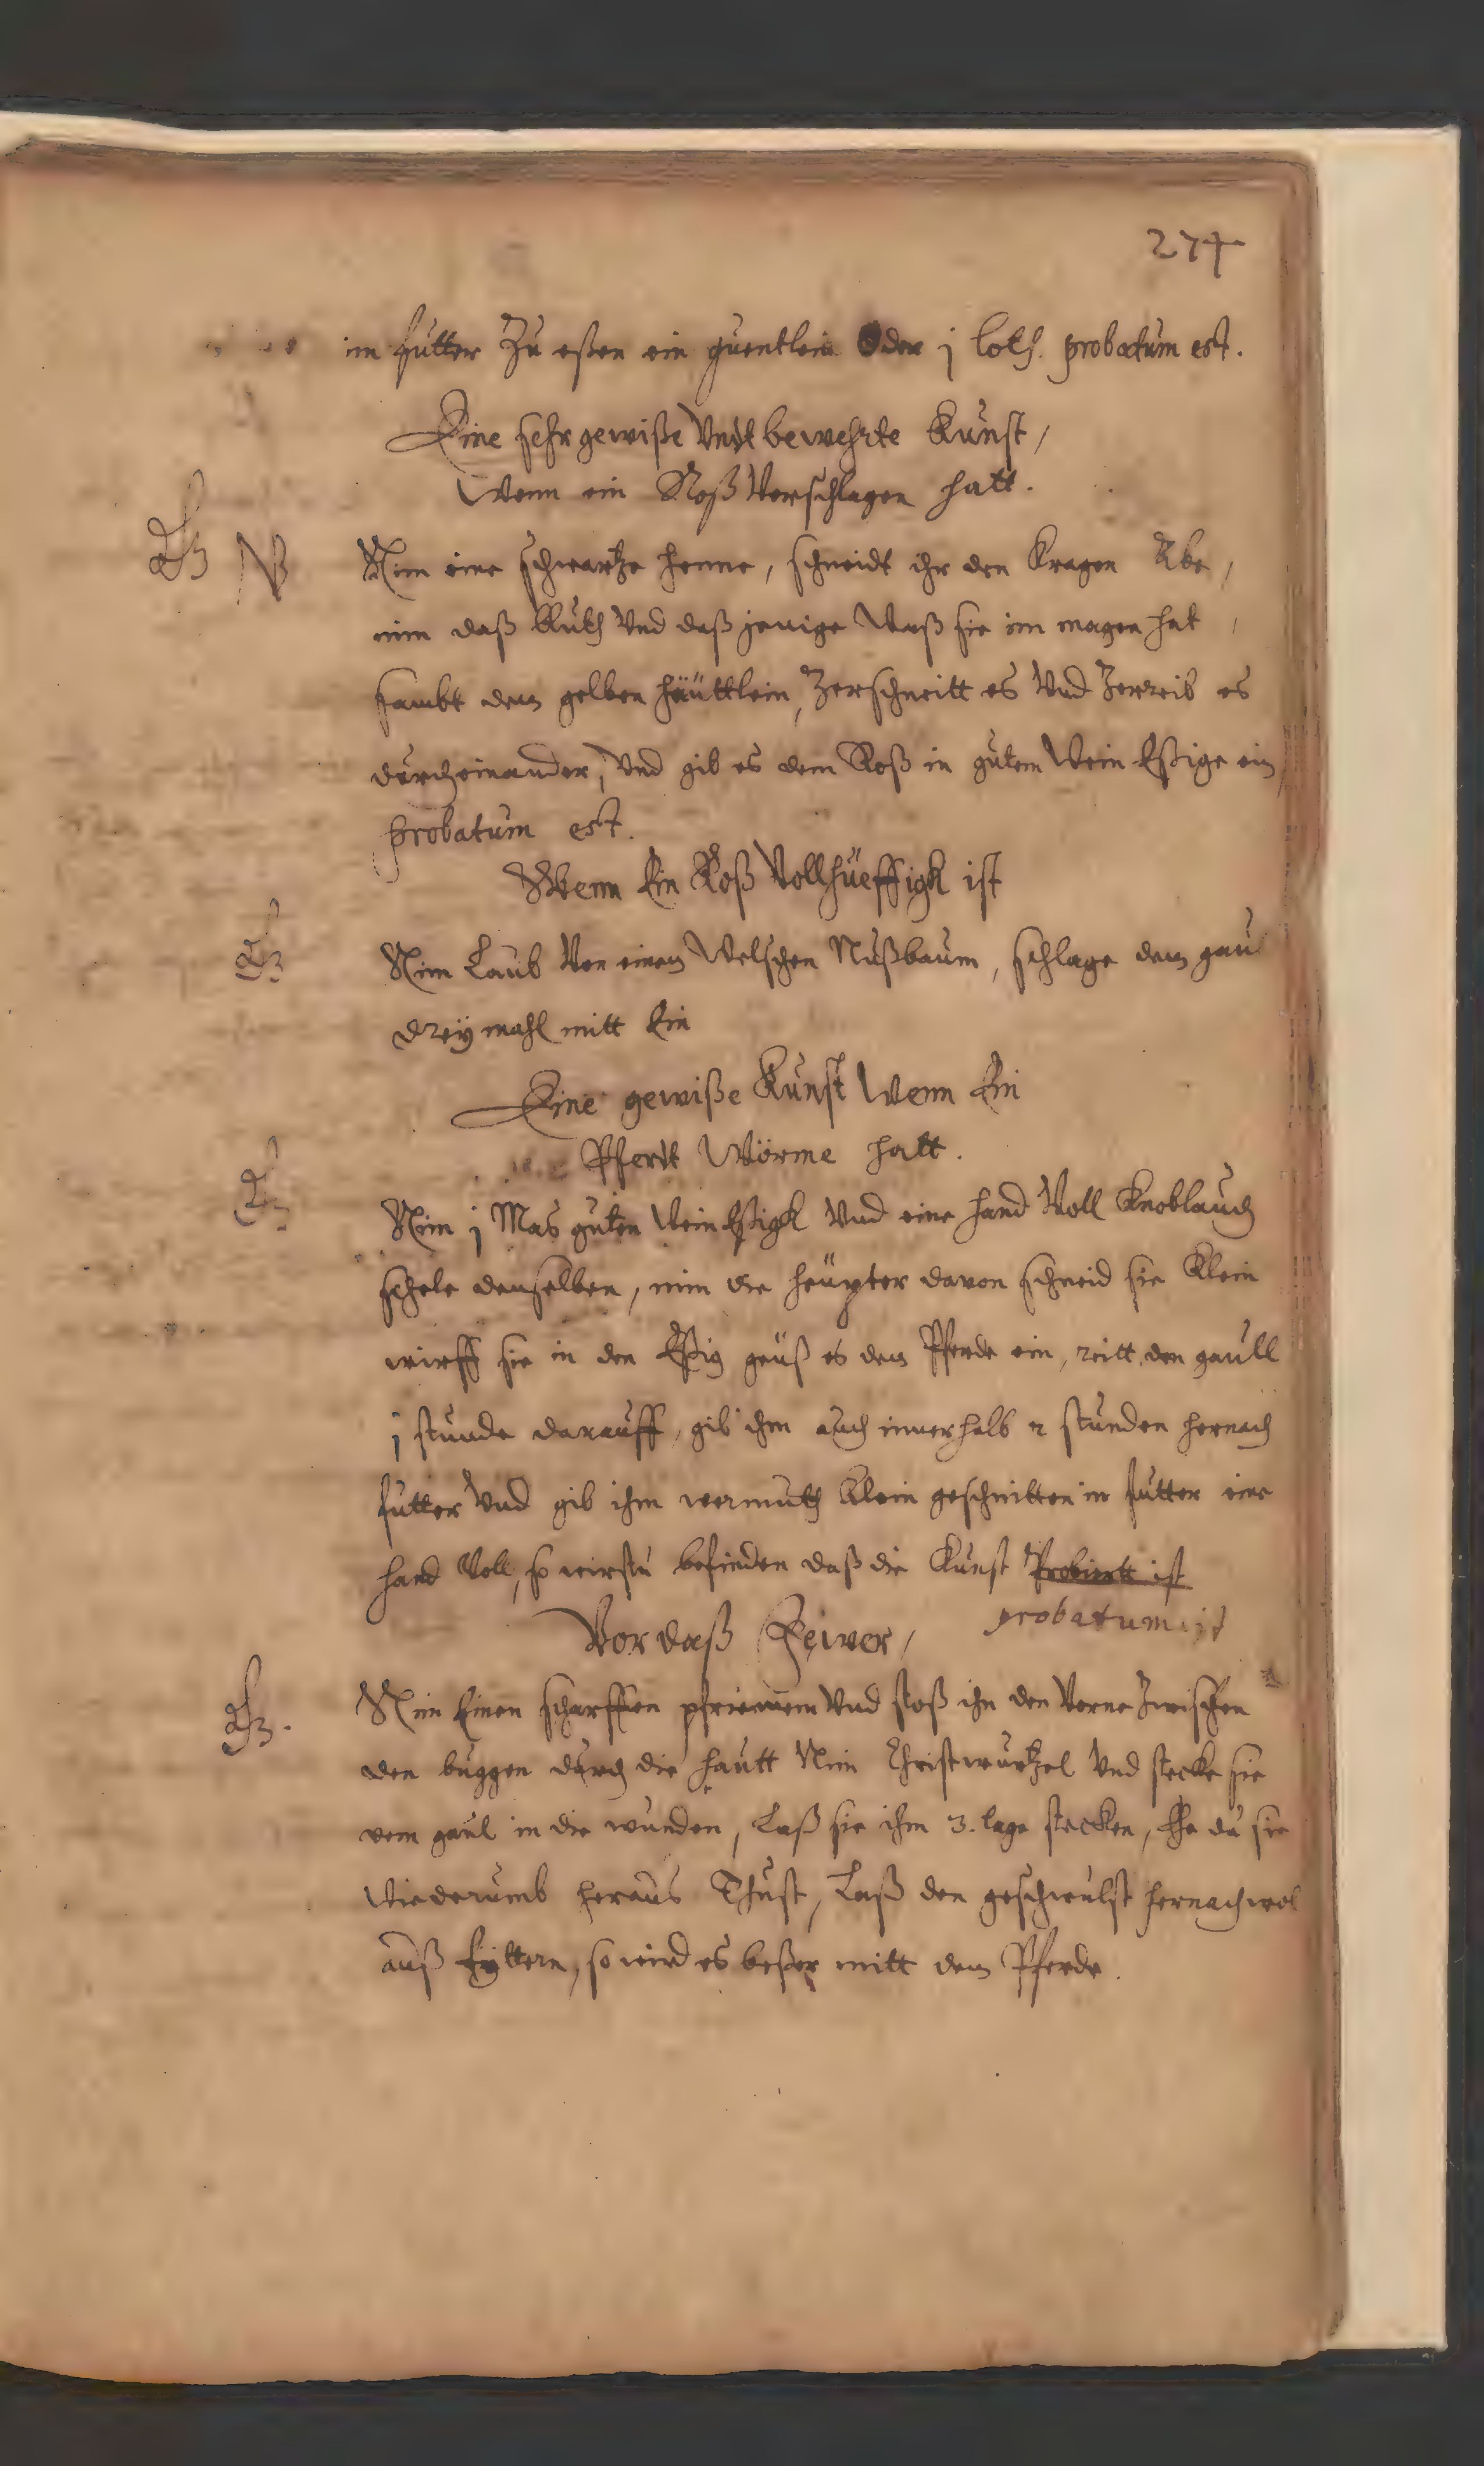 274
im futter Zu eßen ein quentlein Oder j loth. probatum est.
Eine sehr gewiße Undt bewehrte Kunst /
Wenn ein Roß Verschlagen hatt.
NB Nim eine schwartze henne, schneidt ihr den Kragen Abe,
nim daß Bluth Und daß jenige Waß sie im magen hat,
sambt dem gelben häüttlein, Zerschneitt es Und Zerreib es
durcheinander, Und gib es dem Roß in gutem Wein Eßige ein
probatum est.
Wenn Ein Roß Vollhüeffigk ist
Nim Laub Von einem Welschen Nußbaum, schlage dem gaul
dreÿ mahl mitt Ein
Eine gewiße Kunst Wenn Ein
Pferdt Würme hatt.
Nim j Mas guten Wein Eßigk Und eine hand Voll Knoblauch
schele denselben, nim die heüpter davon schneid sie Klein
wirff sie in den Eßig geüß es dem Pferde ein, reitt den gaull
j stunde darauff, gib ihm auch innerhalb 2 stunden hernach
futter Und gib ihm wermuth Klein geschnitten im futter eine
hand Voll, so wirstu befinden daß die Kunst Probiertt ist
probatum ist
Vor daß Feiver,
Nim Einen scharffen pfriemem Und stoß ihn den Vorne Zwischen
den buggen durch die hautt Nim Christwurtzel Und stecke sie
dem gaul in die wunden, Laß sie ihm 3. tage stecken, Ehe du sie
Wiederumb heraus Thust, Laß den geschwulst hernach wol
auß Eÿttern, so wird es beßer mitt dem Pferde.